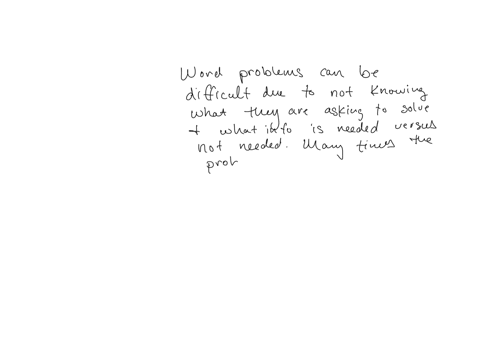 Word problems can be
difficult due to not knowing
what they are asking to solve
+ what info is needed versus
not needed. Many times the
prob